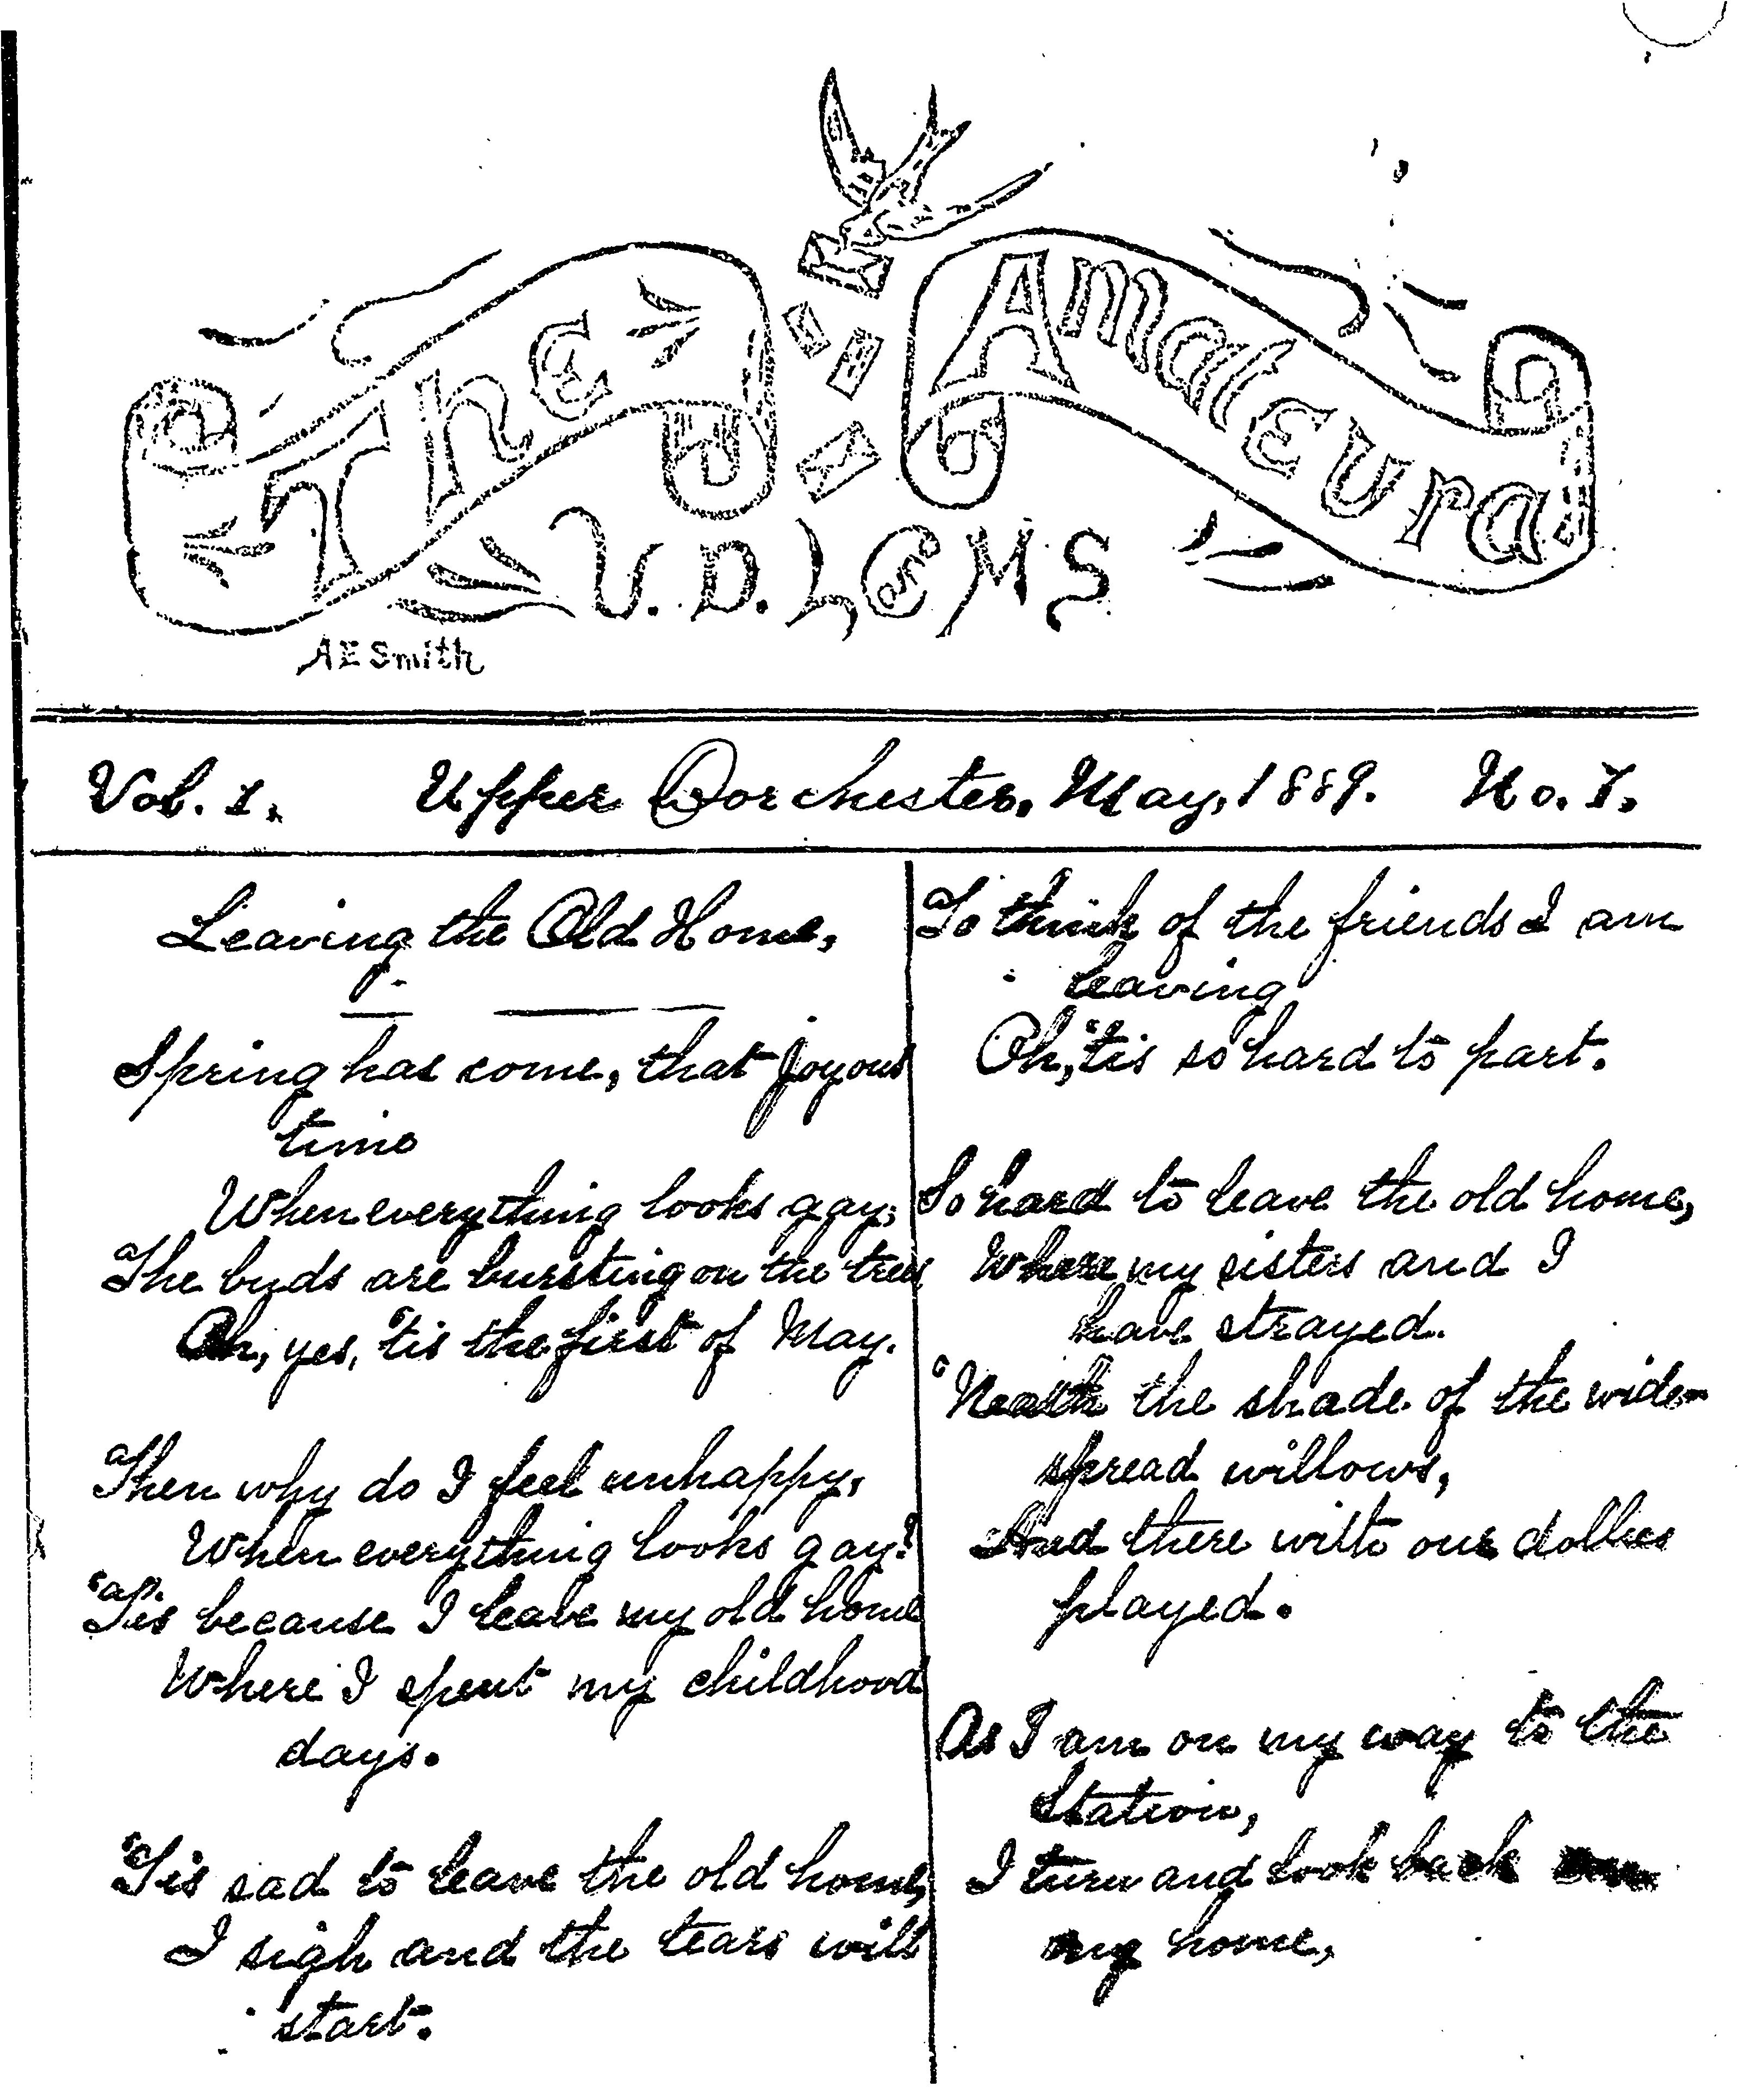 The Amateur
U.D.L&MS
AE Smith
Vol. 1. Upper Dorchester, May, 1889. No. 1.
Leaving the Old Home,
Spring has come, that joyous
time
When everything looks gay,
The buds are bursting on the trees
Oh, yes, 'tis the first of May.
Then why do I feel unhappy,
When everything looks gay?
'Tis because I leave my old home
Where I spent my childhood
days.
'Tis sad to leave the old home,
I sigh and the tears will
start.
To think of the friends I am
leaving
Oh, 'tis so hard to part.
So hard to leave the old home,
Where my sisters and I
have strayed.
'Neath the shade of the wide-
spread willows,
And there with our dollies
played.
As I am on my way to the
Station,
I turn and look back
my home,